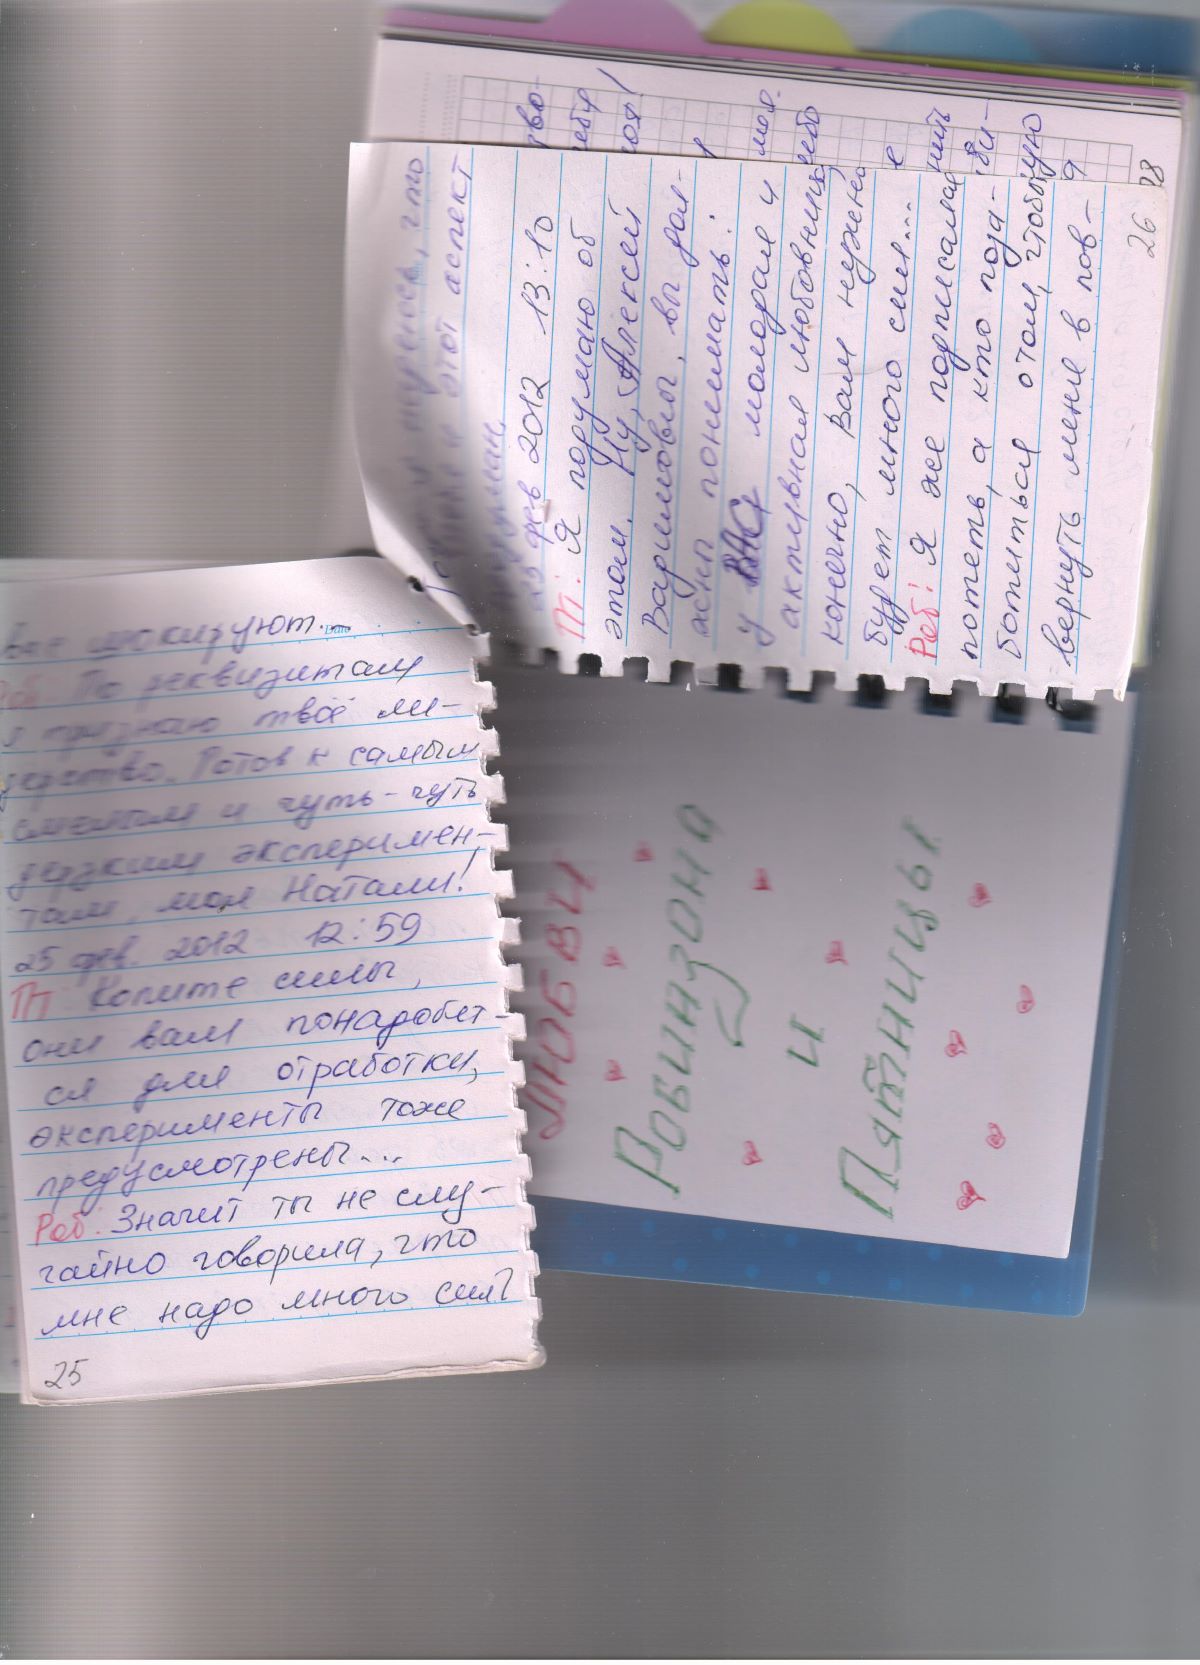 вас шокируют...
Роб: По реквизитам
я признаю твоё ли-
дерство. Готов к самым
смелым и чуть-чуть
дерзким эксперимен-
там, моя Натали!
25 дек. 2012 12:59
Пт: Копите силы,
они вам понадобят-
ся для отработки,
эксперименты тоже
предусмотрены...
Роб: Значит ты не слу-
чайно говорила, что
мне надо много сил?
25
надеюсь, что
этот аспект
продуман.
25 дек 2012 13:10
Пт: Я подумаю об
этом. Ну, Алексей
Вадимовы, вы дол-
жны понимать:
у ВАС молодая и
активная любовница,
конечно, Вам нужно
будет много сил...
Роб: Я же подписался
потеть, а кто поза-
ботиться о том, чтобы
вернуть меня в пов-
26
28
ЛЮБВИ
Робинзона
и
Пятницы